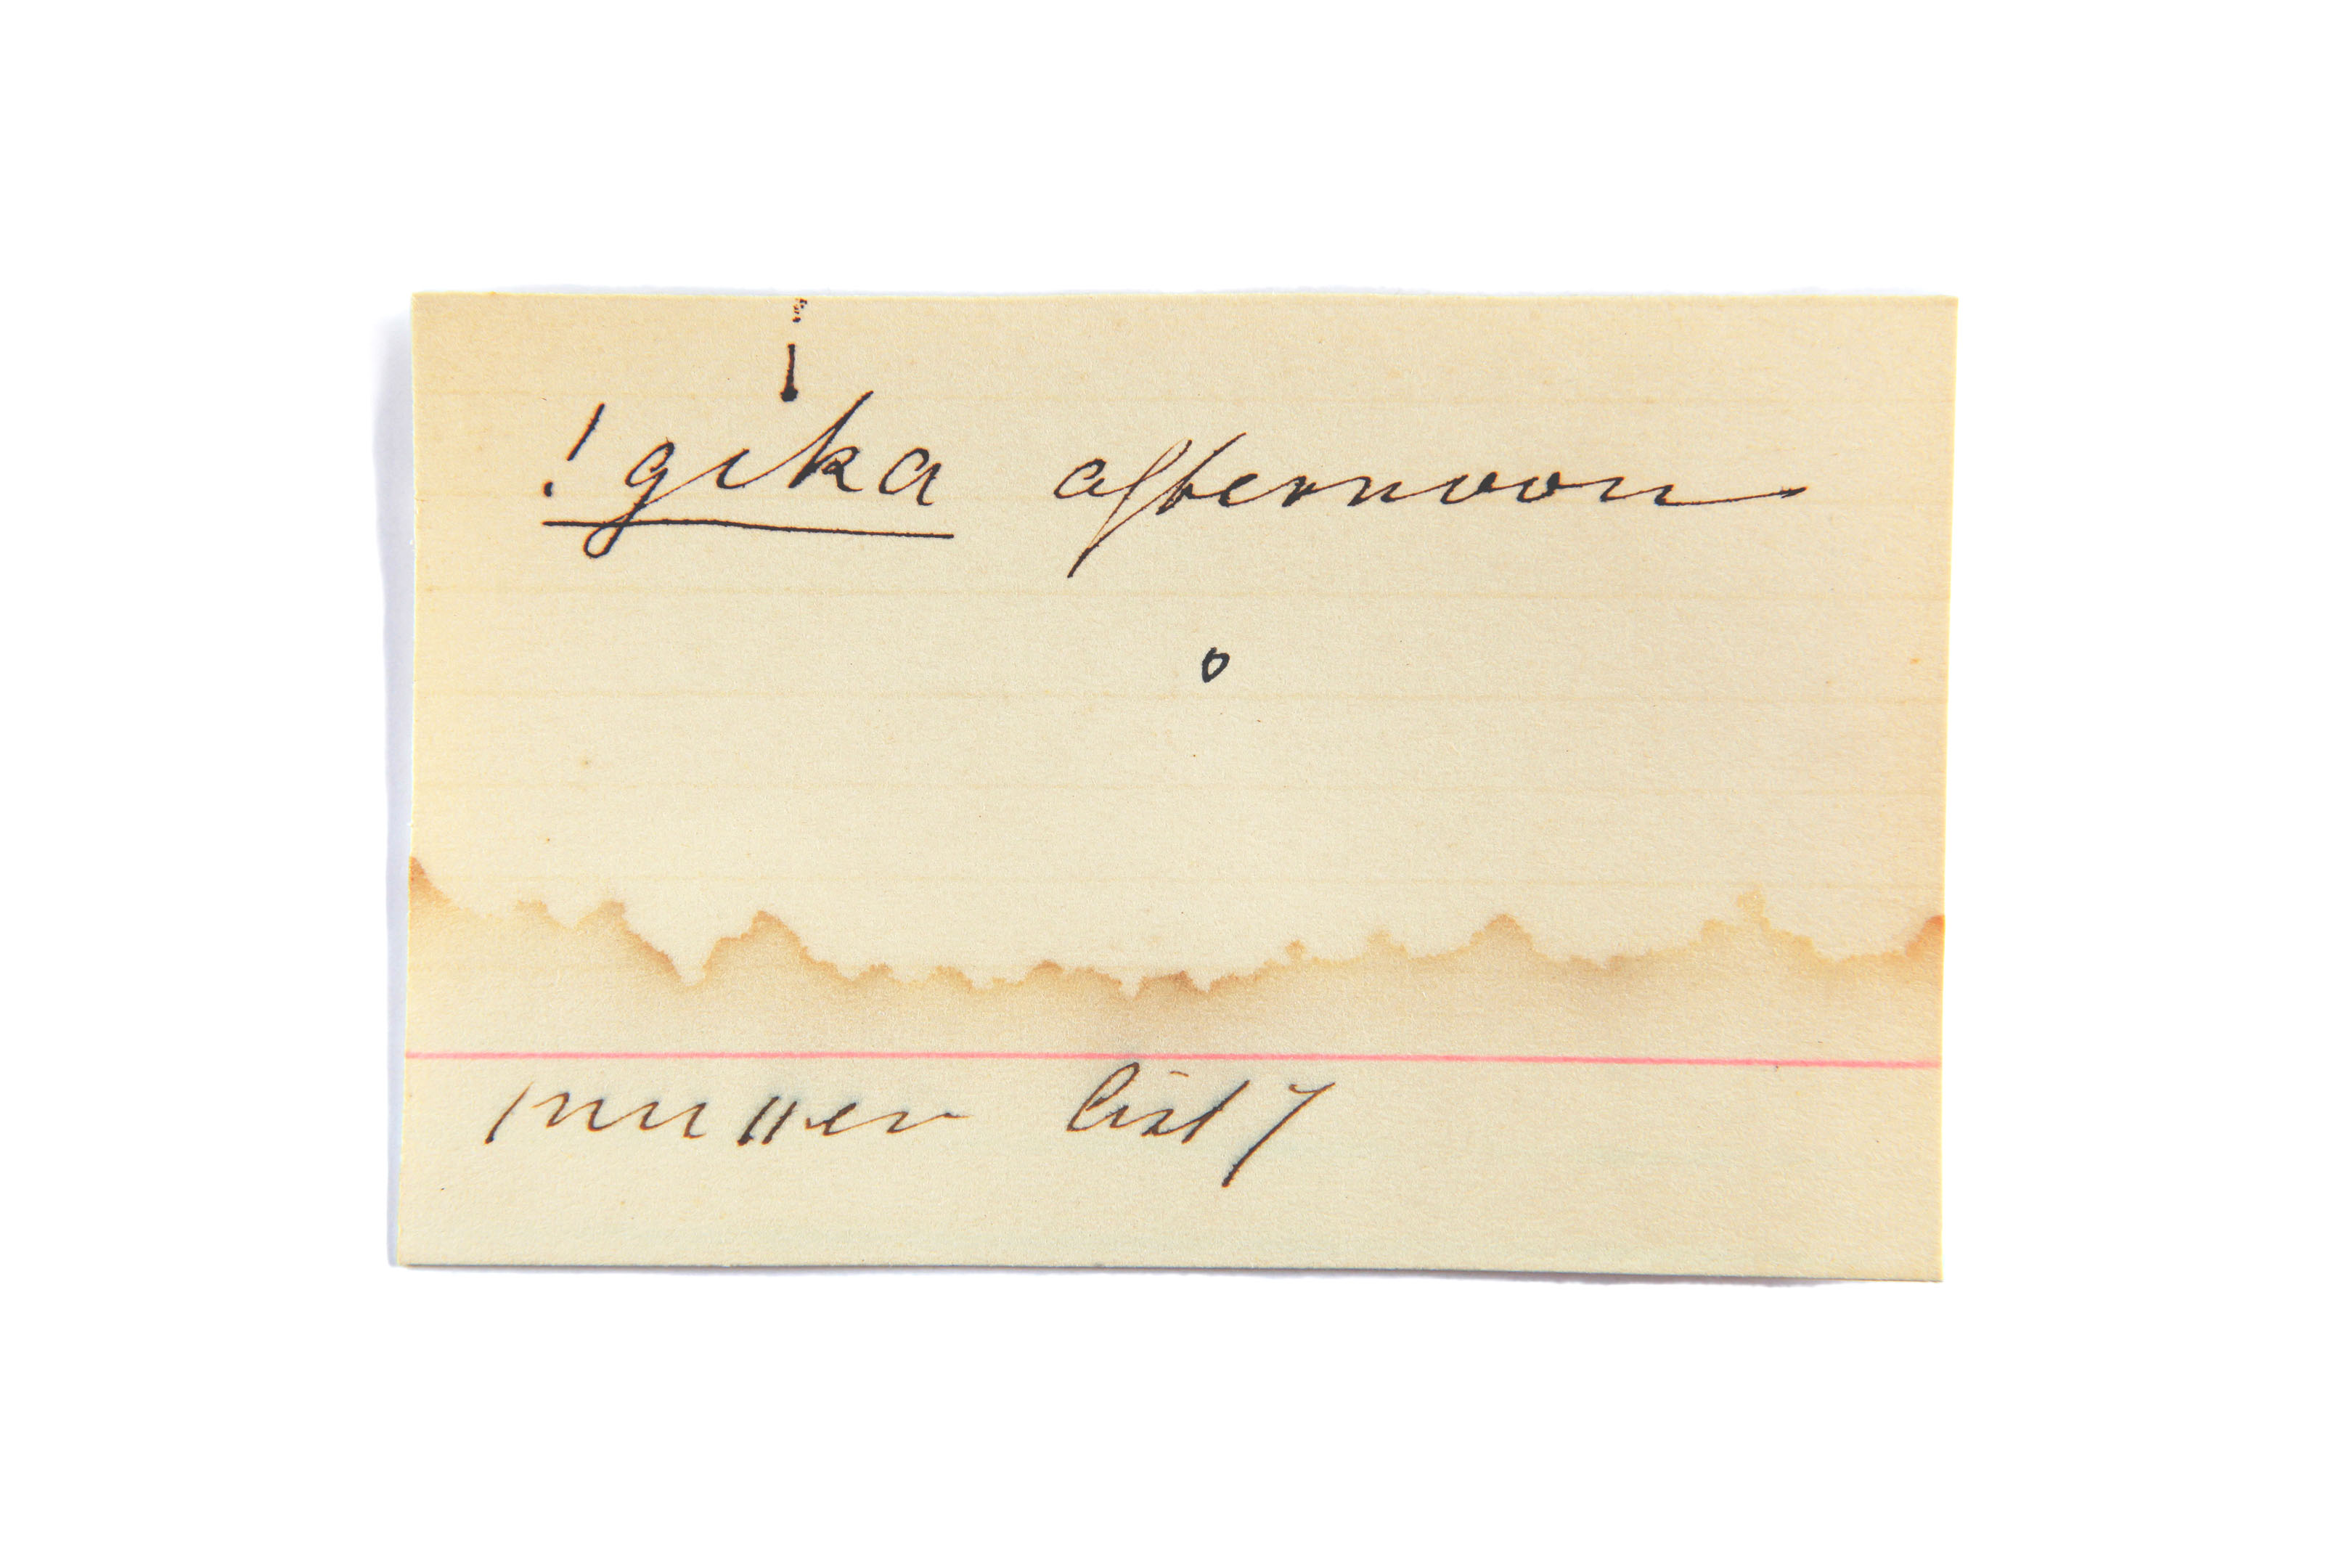 !gika afternoon
o
list 7